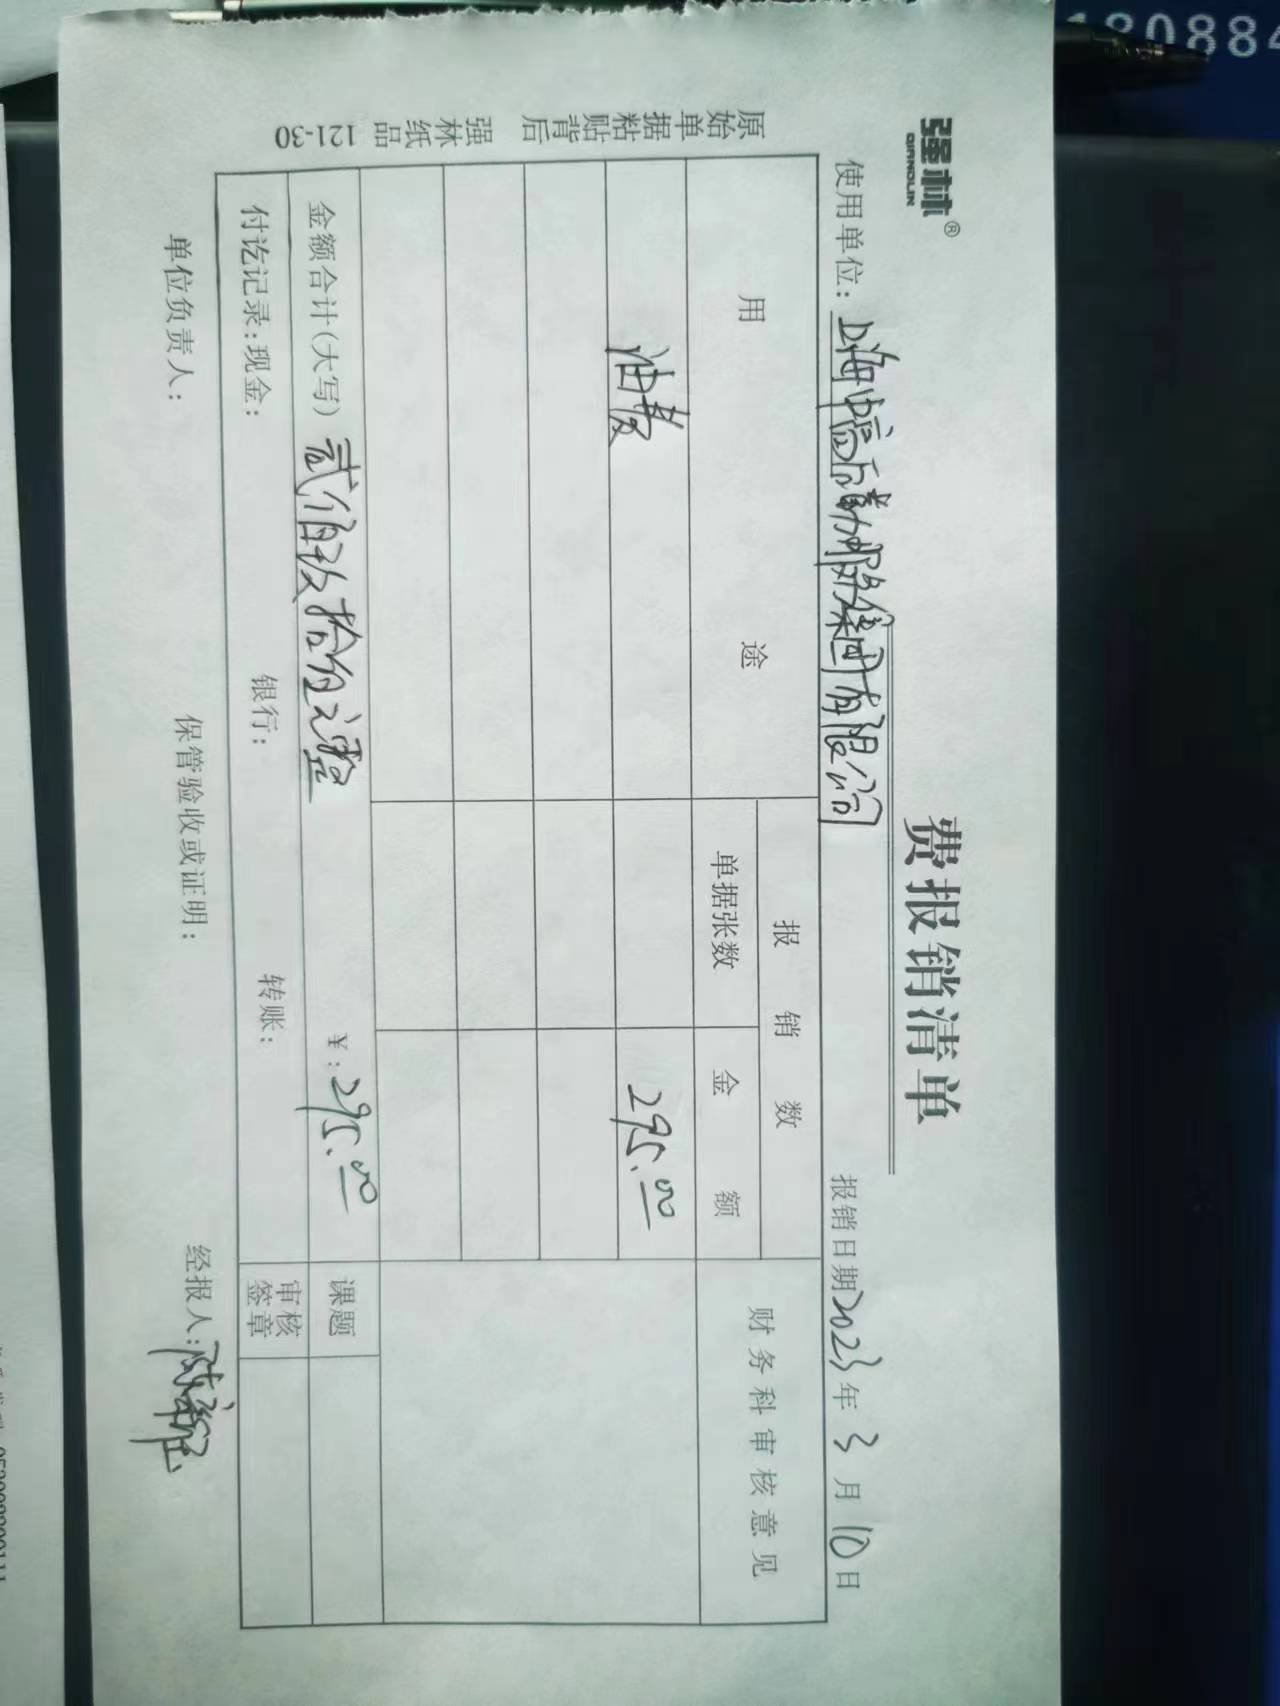 强林®
QIANGLIN
费报销清单
使用单位：上海 集团有限公司
报销日期2023年3月10日
用途
报销数
财务科审核意见
单据张数
金额
油费
295.00
金额合计(大写) 贰佰玖拾伍元整
￥：295.00
课题
付讫记录：现金：
银行：
转账：
审核签章
单位负责人：
保管验收或证明：
经报人：
原始单据粘贴背后
强林纸品
121-30
180884